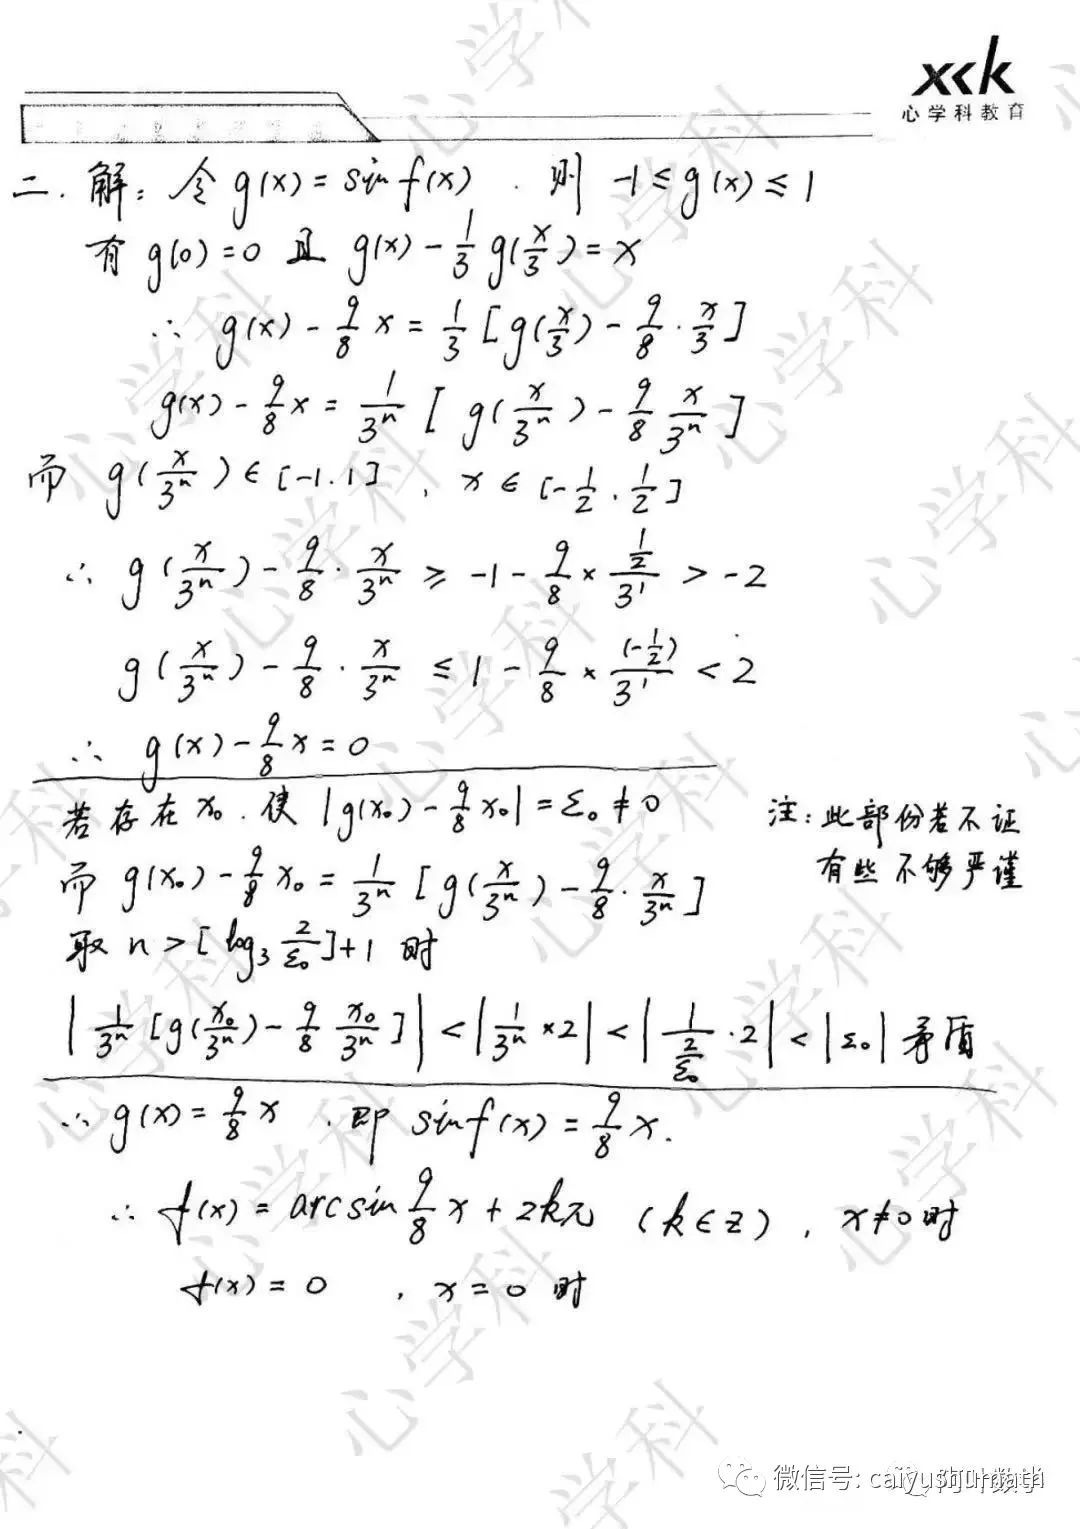 xck
心学科教育
二. 解: 令 g(x) = sin f(x) . 则 -1 ≤ g(x) ≤ 1
有 g(0) = 0 且 g(x) - 1/3 g(x/3) = x
∴ g(x) - 9/8 x = 1/3 [g(x/3) - 9/8 · x/3]
g(x) - 9/8 x = 1/3ⁿ [g(x/3ⁿ) - 9/8 x/3ⁿ]
而 g(x/3ⁿ) ∈ [-1.1] , x ∈ [-1/2 . 1/2]
∴ g(x/3ⁿ) - 9/8 · x/3ⁿ ≥ -1 - 9/8 × (1/2)/3¹ > -2
g(x/3ⁿ) - 9/8 · x/3ⁿ ≤ 1 - 9/8 × (-1/2)/3¹ < 2
∴ g(x) - 9/8 x = 0
若存在 x₀ . 使 |g(x₀) - 9/8 x₀| = Σ₀ ≠ 0
注: 此部份若不证
有些不够严谨
而 g(x₀) - 9/8 x₀ = 1/3ⁿ [g(x/3ⁿ) - 9/8 · x/3ⁿ]
取 n > [log₃ 2/Σ₀] + 1 时
|1/3ⁿ [g(x₀/3ⁿ) - 9/8 x₀/3ⁿ]| < |1/3ⁿ × 2| < |1/(2/Σ₀) · 2| < |Σ₀| 矛盾
∴ g(x) = 9/8 x . 即 sin f(x) = 9/8 x.
∴ f(x) = arcsin 9/8 x + 2kπ (k ∈ Z) , x ≠ 0 时
f(x) = 0 , x = 0 时
微信号: caiyushumath